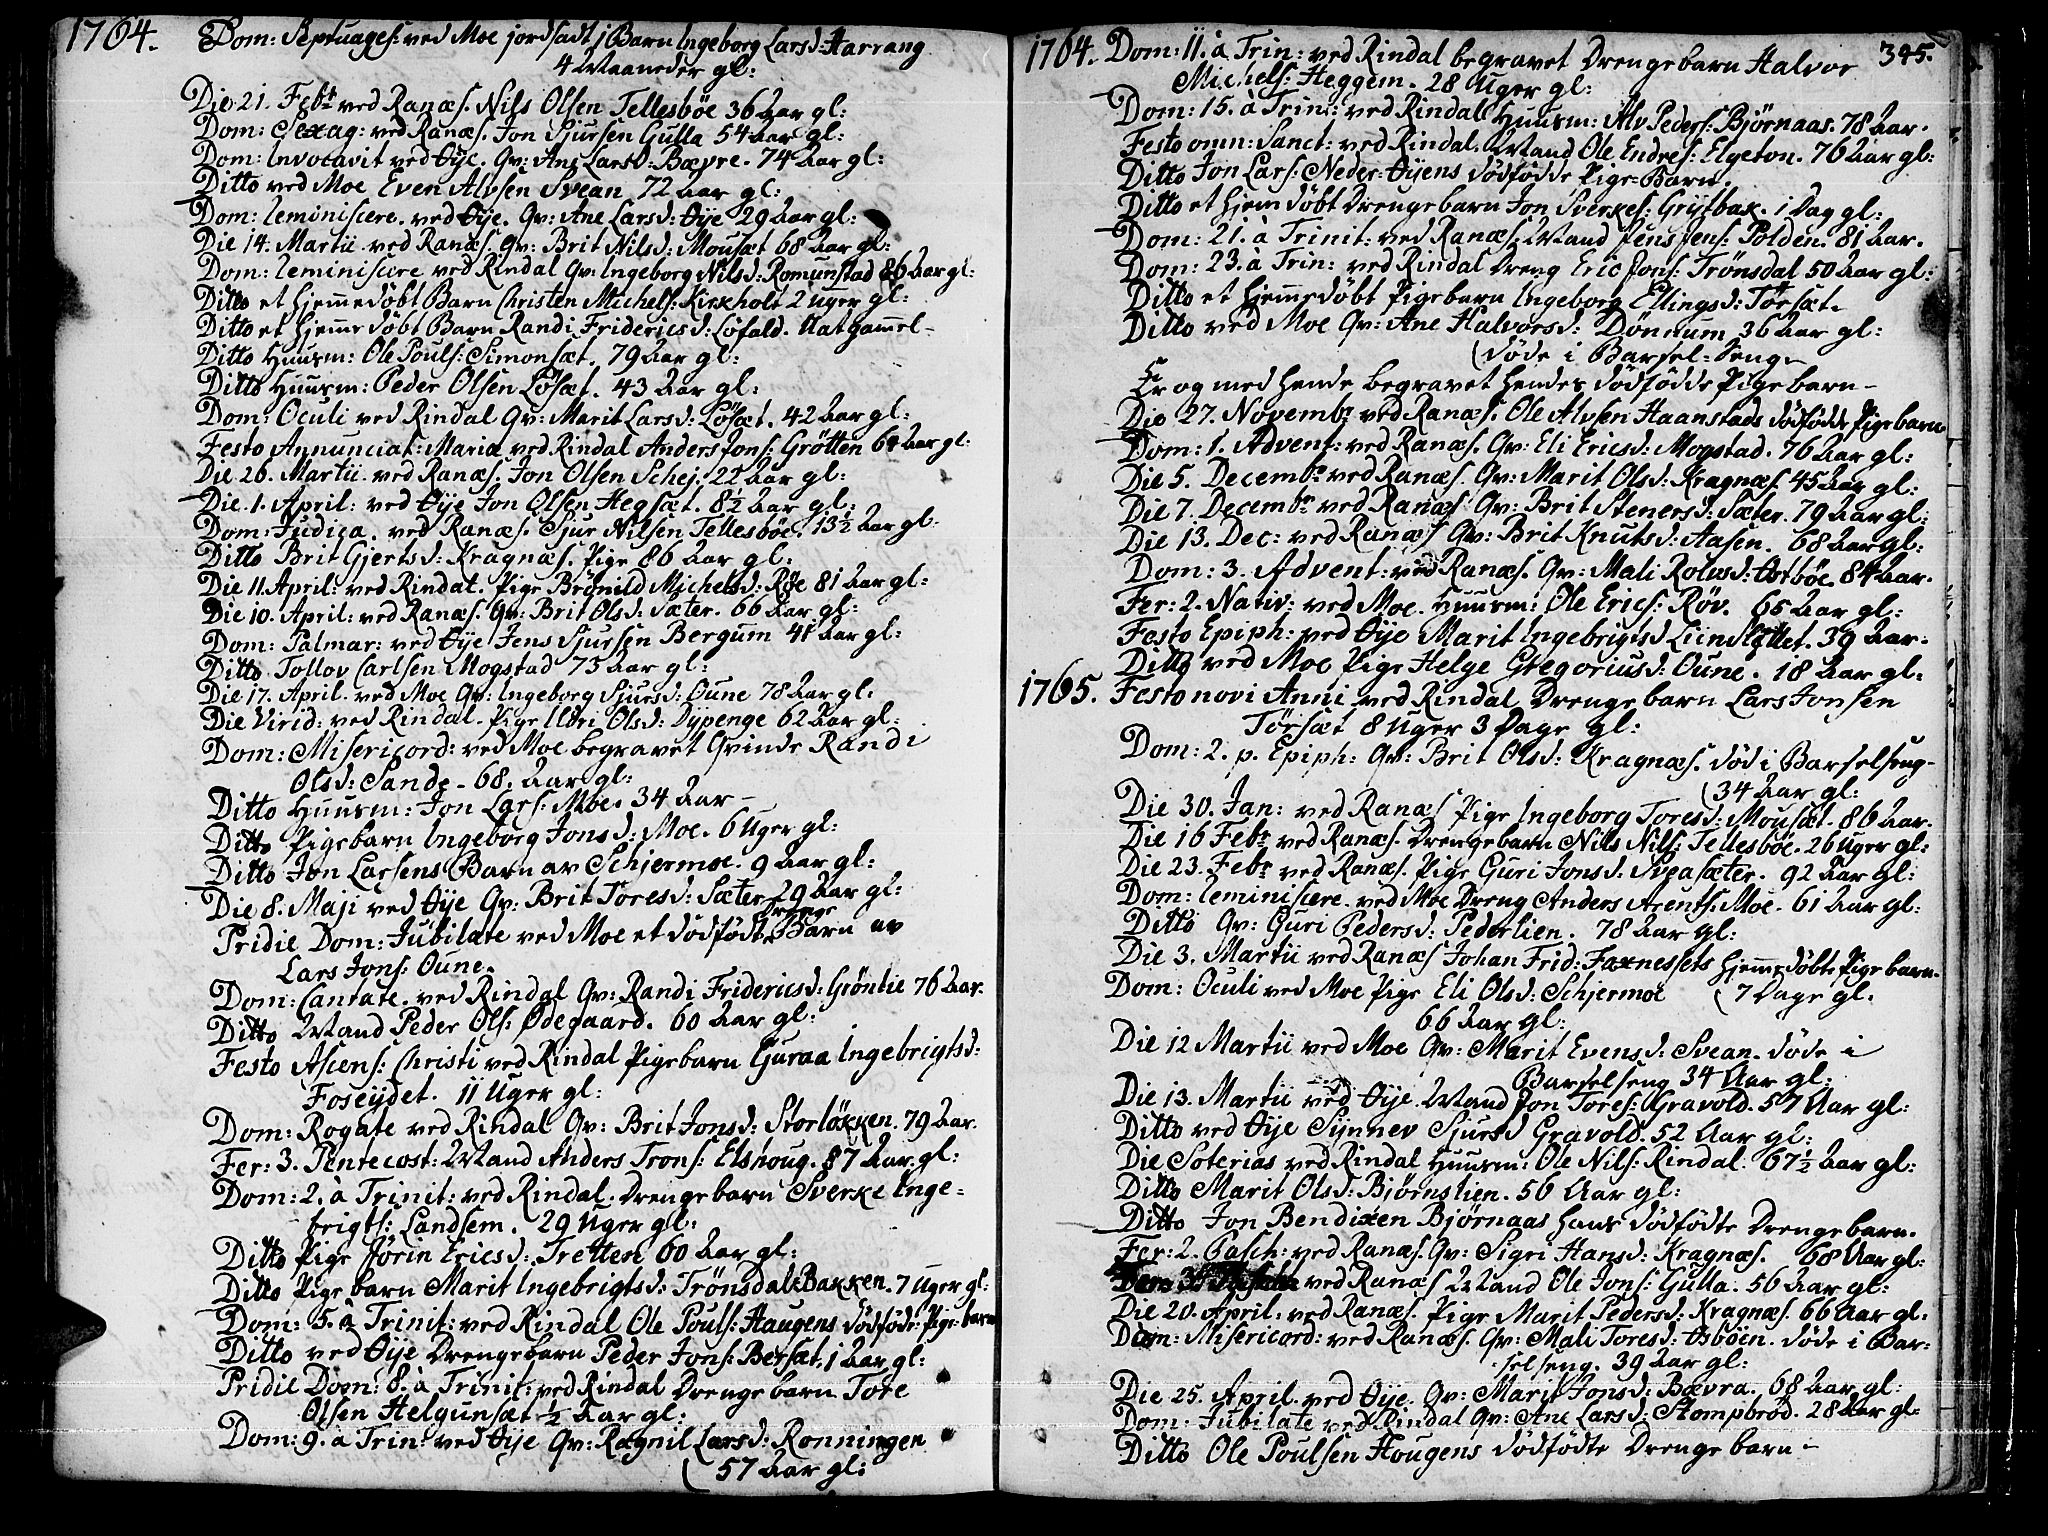 1764. Dom: Septuages: ved Moe jordsadt j Barn Ingeborg Larsd: Harrang
4 Maaneder gl:
Die 21. Febr. ved Ranæs. Nils Olsen Tellesböe 36 Aar gl:
Dom: Sexag: ved Ranæs. Jon Sjursen Gulla 54 Aar gl:
Dom: Invocavit ved Øÿe. Qv: Ane Larsd: Bævre. 74 Aar gl:
Ditto ved Moe Even Alvsen Svean 72 Aar gl:
Dom: Reminiscere. ved Øÿe. Qv: Ane Larsd: Øÿe 29 Aar gl:
Die 14. Martii ved Ranæs. Qv: Brit Nilsd: Mousæt 68 Aar gl:
Dom: Reminiscere ved Rindal Qv: Ingeborg Nilsd: Romunstad 86 Aar gl:
Ditto et hjemmedöbt Barn Christen Michels: Kirkholt 2 Uger gl:
Ditto et hjemmedöbt Barn Randi Fridericsd: Löfald. Nat gammel-
Ditto Huusm: Ole Pouls: Simonsæt. 79 Aar gl:
Ditto Huusm: Peder Olsen Lösæt. 43 Aar gl:
Dom: Oculi ved Rindal Qv: Marit Larsd: Lösæt. 42 Aar gl:
Festo Annunciat: Mariæ ved Rindal Anders Jons: Grötten 64 Aar gl:
Die 26. Martii ved Ranæs. Jon Olsen Schej. 22 Aar gl:
Die 1. April: ved Øÿe Jon Olsen Hegsæt. 8½ Aar gl:
Dom: Judica. ved Ranæs. Sjur Nilsen Tellesböe. 13½ Aar gl:
Ditto Brit Gjertsd: Kragnæs. Pige 86 Aar gl:
Die 11. April: ved Rindal. Pige Brönild Michelsd: Röe 81 Aar gl:
Die 10. April: ved Ranæs. Qv: Brit Olsd: Sæter. 66 Aar gl:
Dom: Palmar: ved Øÿe Jens Sjursen Bergum 41 Aar gl:
Ditto Tollov Carlsen Mogstad 75 Aar gl:
Die 17. April. ved Moe Qv: Ingeborg Sjursd: Oune 78 Aar gl:
Die Virid: ved Rindal. Pige Uöri Olsd: Dÿpenge 62 Aar gl:
Dom: Misericord: ved Moe begravet Qvinde Randi
Olsd: Sande - 68. Aar gl:
Ditto Huusm: Jon Lars: Moe. 34 Aar-
Ditto Pigebarn Ingeborg Jonsd: Moe. 6 Uger gl:
Ditto Jon Larsens Barn av Schjermoe. 9 Aar gl:
Die 8. Maji ved Øÿe Qv: Brit Toresd: Sæter 29 Aar gl:
Pridie Dom: Jubilate ved Moe et dödfödte Drenge Barn av
Lars Jons: Oune.
Dom: Cantate. ved Rindal Qv: Randi Fridericsd: Grönlie 76 Aar.
Ditto Mand Peder Ols: Ødegaard. 60 Aar gl:
Festo Ascens: Christi ved Rindal Pigebarn Guraa Ingebrigtsd:
Foseÿdet. 11 Uger gl:
Dom: Rogate ved Rindal Qv: Brit Jonsd: Storlökken. 79 Aar.
Fer: 3. Pentecost: Mand Anders Trons: Elshoug. 87 Aar gl:
Dom: 2. à Trinit: ved Rindal. Drengebarn Sverke Inge=
brigts: Landsem. 29 Uger gl:
Ditto Pige Jörin Ericsd: Tretten 60 Aar gl:
Ditto Pige barn Marit Ingebrigtsd: Trönsdal Bakken. 7 Uger gl:
Dom: 5. à Trinit: ved Rindal Ole Pouls: Haugens dödföde Pige-barn
Ditto ved Øÿe Drengebarn Peder Jons: Bersæt. 1 Aar gl:
Pridie Dom: 8. à Trinit: ved Rindal Drenge barn Tore
Olsen Helgunsæt ½ Aar gl:
Dom: 9. à Trin: ved Øÿe Qv: Ragnil Larsd: Ronningen
57 Aar gl:
1764. Dom: 11. à Trin: ved Rindal begravet Drengebarn Halvor 395.
Michels: Heggem. 28 Uger gl:
Dom: 15. à Trin: ved Rindal Huusm: Alv Peders: Björnaas. 78 Aar.
Festo omn: Sanct: ved Rindal. Mand Ole Endres: Elgeton. 76 Aar gl:
Ditto Jon Lars: Neder-Øÿens dödfödde Pige-Barn
Ditto et hjemdöbt Drengebarn Jon Sverkes: Grÿtbak. 1 Dag gl:
Dom: 21. à Trinit: ved Ranæs. Mand Jens Jens: Polden. 81 Aar.
Dom: 23. à Trin: ved Rindal Dreng Eric Jons: Trönsdal 50 Aar gl:
Ditto et hjemmedöbt Pigebarn Ingeborg Ellingsd: Törsæt.
Ditto ved Moe Qv: Ane Halvorsd: Dönnum 36 Aar gl:
döde i Barsel-Seng-
Er og med hende begravet hendes dödfödde Pigebarn-
Die 27. Novembr. ved Ranæs. Ole Alvsen Haanstads dödfödde Pigebarn
Dom: 1. Advent: ved Ranæs. Qv: Eli Ericsd: Mogstad. 76 Aar gl:
Die 5. Decembr. ved Ranæs. Qv: Marit Olsd: Kragnæs. 45 Aar gl:
Die 7. Decembr. ved Ranæs. Qv: Brit Stenersd: Sæter. 79 Aar gl:
Die 13. Dec: ved Ranæs Qv: Brit Knutsd: Aasen. 68 Aar gl:
Dom: 3. Advent: ved Ranæs. Qv: Mali Rolvsd: Østböe 84 Aar.
Fer: 2. Nativ: ved Moe. Huusm: Ole Erics: Röv. 65 Aar gl:
Festo Epiph: ved Øÿe Marit Ingebrigtsd Liinslettet. 39 Aar.
Ditto ved Moe Pige Helge Gregoriusd: Oune. 18 Aar gl:
1765. Festo novi Anni ved Rindal Drengebarn Lars Jonsen
Törsæt 8 Uger 3 Dage gl:
Dom: 2. p. Epiph: Qv: Brit Olsd: Kragnæs. död i Barselseng-
34 Aar gl:
Die 30. Jan: ved Ranæs Pige Ingeborg Toresd: Mousæt. 86 Aar.
Die 16 Febr. ved Ranæs. Drengebarn Nils Nils: Tellesböe. 26 Uger gl:
Die 23. Febr. ved Ranæs. Pige Guri Jonsd. Sveasæter. 92 Aar gl:
Dom: Reminiscere. ved Moe Dreng Anders Arents: Moe. 61 Aar gl:
Ditto Qv: Guri Pedersd: Pederlien. 78 Aar gl:
Die 3. Martii ved Ranæs Johan Frid: Faxnessets hjemmedöbte Pige barn.
Dom: Oculi ved Moe Pige Eli Olsd: Schjermoe 7 Dage gl.
66 Aar gl:
Die 12 Martii ved Moe Qv: Marit Evensd: Svean. döde i
Barselseng 34 Aar gl:
Die 13. Martii ved Øÿe. Mand Jon Tores: Gravold. 57 Aar gl:
Ditto ved Øÿe Sÿnnev Sjursd Gravold. 52 Aar gl:
Die Soterias ved Rindal Huusm: Ole Nils: Rindal. 67½ Aar gl:
Ditto Marit Olsd: Björnslien. 56 Aar gl:
Ditto Jon Bendixen Björnaas hans dödfödte Drengebarn.
Fer: 2. Pasch: ved Ranæs. Qv: Sigri Hansd: Kragnæs. 68 Aar gl:
ved Ranæs Mand Ole Jons: Gulla. 56 Aar gl:
Die 20. April. ved Ranæs. Pige Marit Pedersd: Kragnæs. 66 Aar gl.
Dom: Misericord: ved Ranæs. Qv: Mali Toresd: Østböen. döde i Bar:
selseng. 39 Aar gl:
Die 25. April. ved Øÿe. Qv: Marit Jonsd: Bævra. 68 Aar gl:
Dom: Jubilate ved Rindal Qv: Ane Larsd: Stompbröd. 28 Aar gl:
Ditto Ole Poulsen Hougens dödfödte Drenge barn-